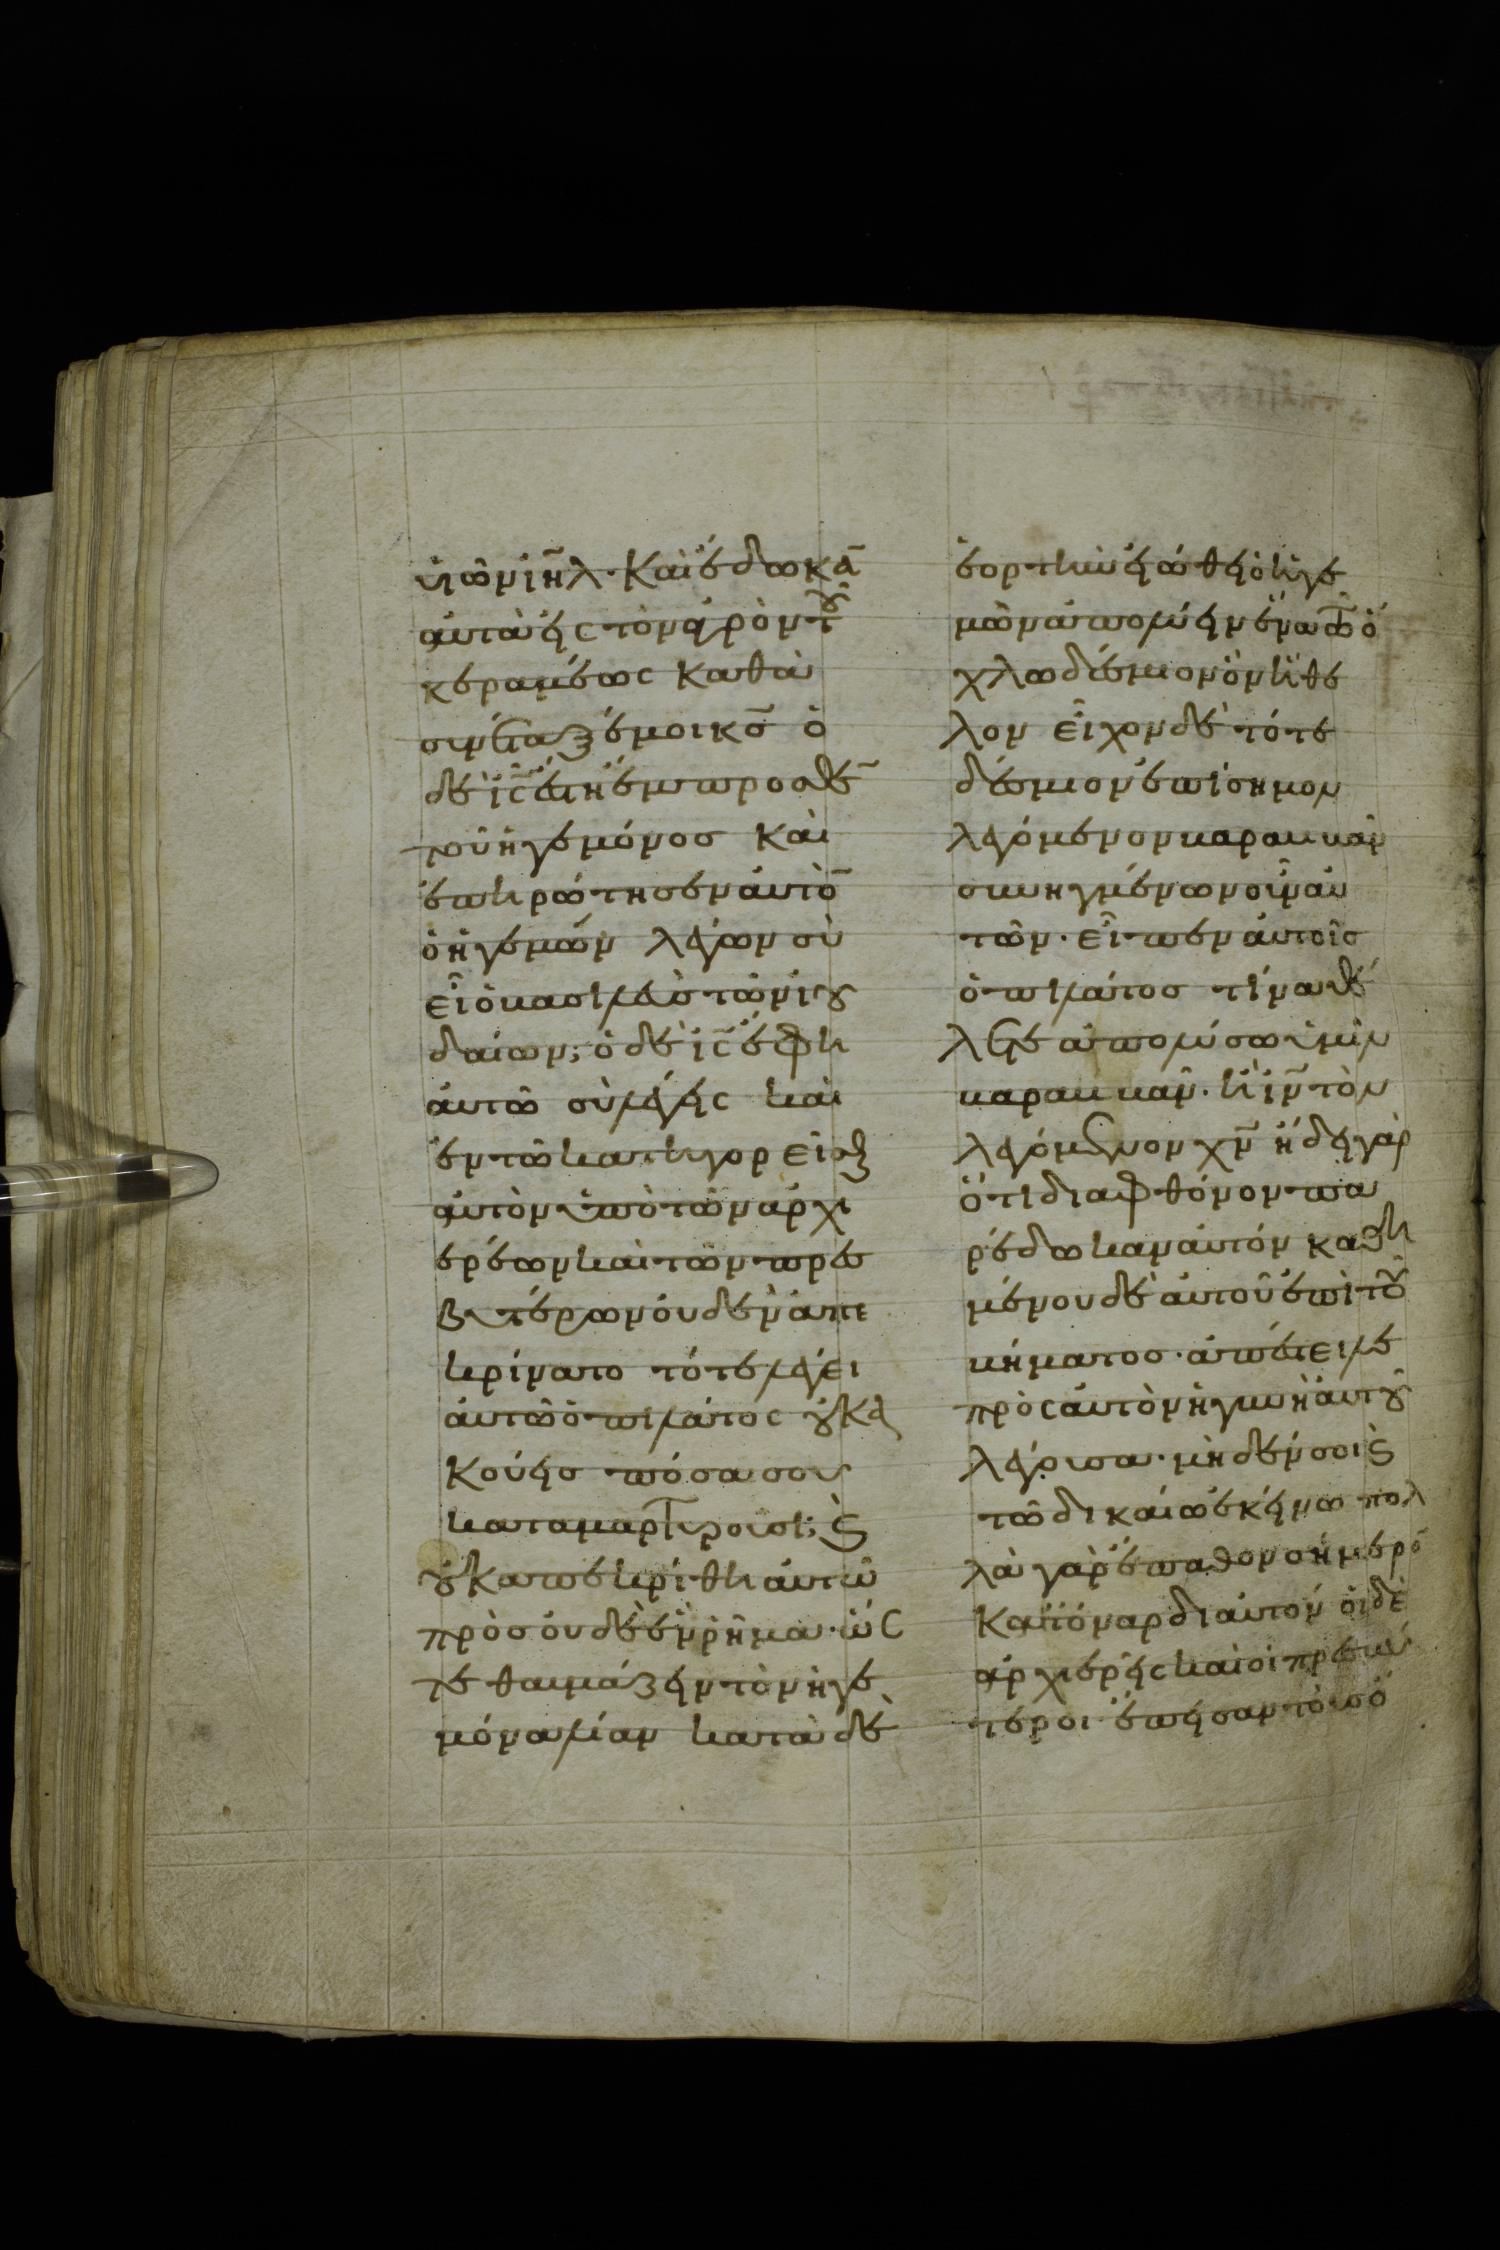 υἱῶν ιη̅λ· Καὶ ἔδωκα̅
αὐτὰ εἰς τὸν ἀγρὸν τοῦ
κεραμέως καθὰ
συνέταξέ μοι κ̅ς̅ ὁ
δὲ ι̅ς̅ ἔστη ἔμπροσθε̅
τοῦ ἡγεμόνος καὶ
ἐπηρώτησεν αὐτὸ̅
ὁ ἡγεμὼν λέγων σὺ
εἶ ὁ βασιλεὺς τῶν ἰου
δαίων; ὁ δὲ ι̅ς̅ ἔφη
αὐτῶ σὺ λέγεις καὶ
ἐν τῶ κατηγορεῖσθαι
αὐτὸν ὑπὸ τῶν ἀρχι
ερέων καὶ τῶν πρεσ
βυτέρων οὐδὲν ἀπε
κρίνατο τότε λέγει
αὐτῶ ὁ πιλάτος οὐκ ἀ
κούεις πόσα σου
καταμαρτυροῦσι; καὶ
οὐκ ἀπεκρίθη αὐτῶ
πρὸς οὐδὲ ἓν ῥῆμα· ὥς
τε θαυμάζειν τὸν ἡγε
μόνα λίαν κατὰ δὲ
ἑορτὴν εἰώθει ὁ ἡγε
μὼν ἀπολύειν ἕνα τῶ ὄ
χλω δέσμιον ὃν ἤθε
λον εἶχον δὲ τότε
δέσμιον ἐπίσημον
λεγόμενον βαραββᾶν
συνηγμένων οὖν αὐ
τῶν· εἶπεν αὐτοῖς
ὁ πιλάτος τίνα θέ
λετε ἀπολύσω ὑμῖν
βαραββᾶν· ἢ ι̅ν̅ τὸν
λεγόμενον χ̅ν̅ ἤδει γὰρ
ὅτι διὰ φθόνον πα
ρέδωκαν αὐτόν καθη
μένου δὲ αὐτοῦ ἐπὶ τοῦ
βήματος· ἀπέστειλε
πρὸς αὐτὸν ἡ γυνὴ αὐτοῦ
λέγουσα· μηδὲν σοι καὶ
τῶ δικαίω ἐκείνω πολ
λὰ γὰρ ἔπαθον σήμερο̅
κατ ὄναρ δι αὐτόν οἱ δὲ
ἀρχιερεῖς καὶ οἱ πρεσβύ
τεροι ἔπεισαν τοὺς ὄ